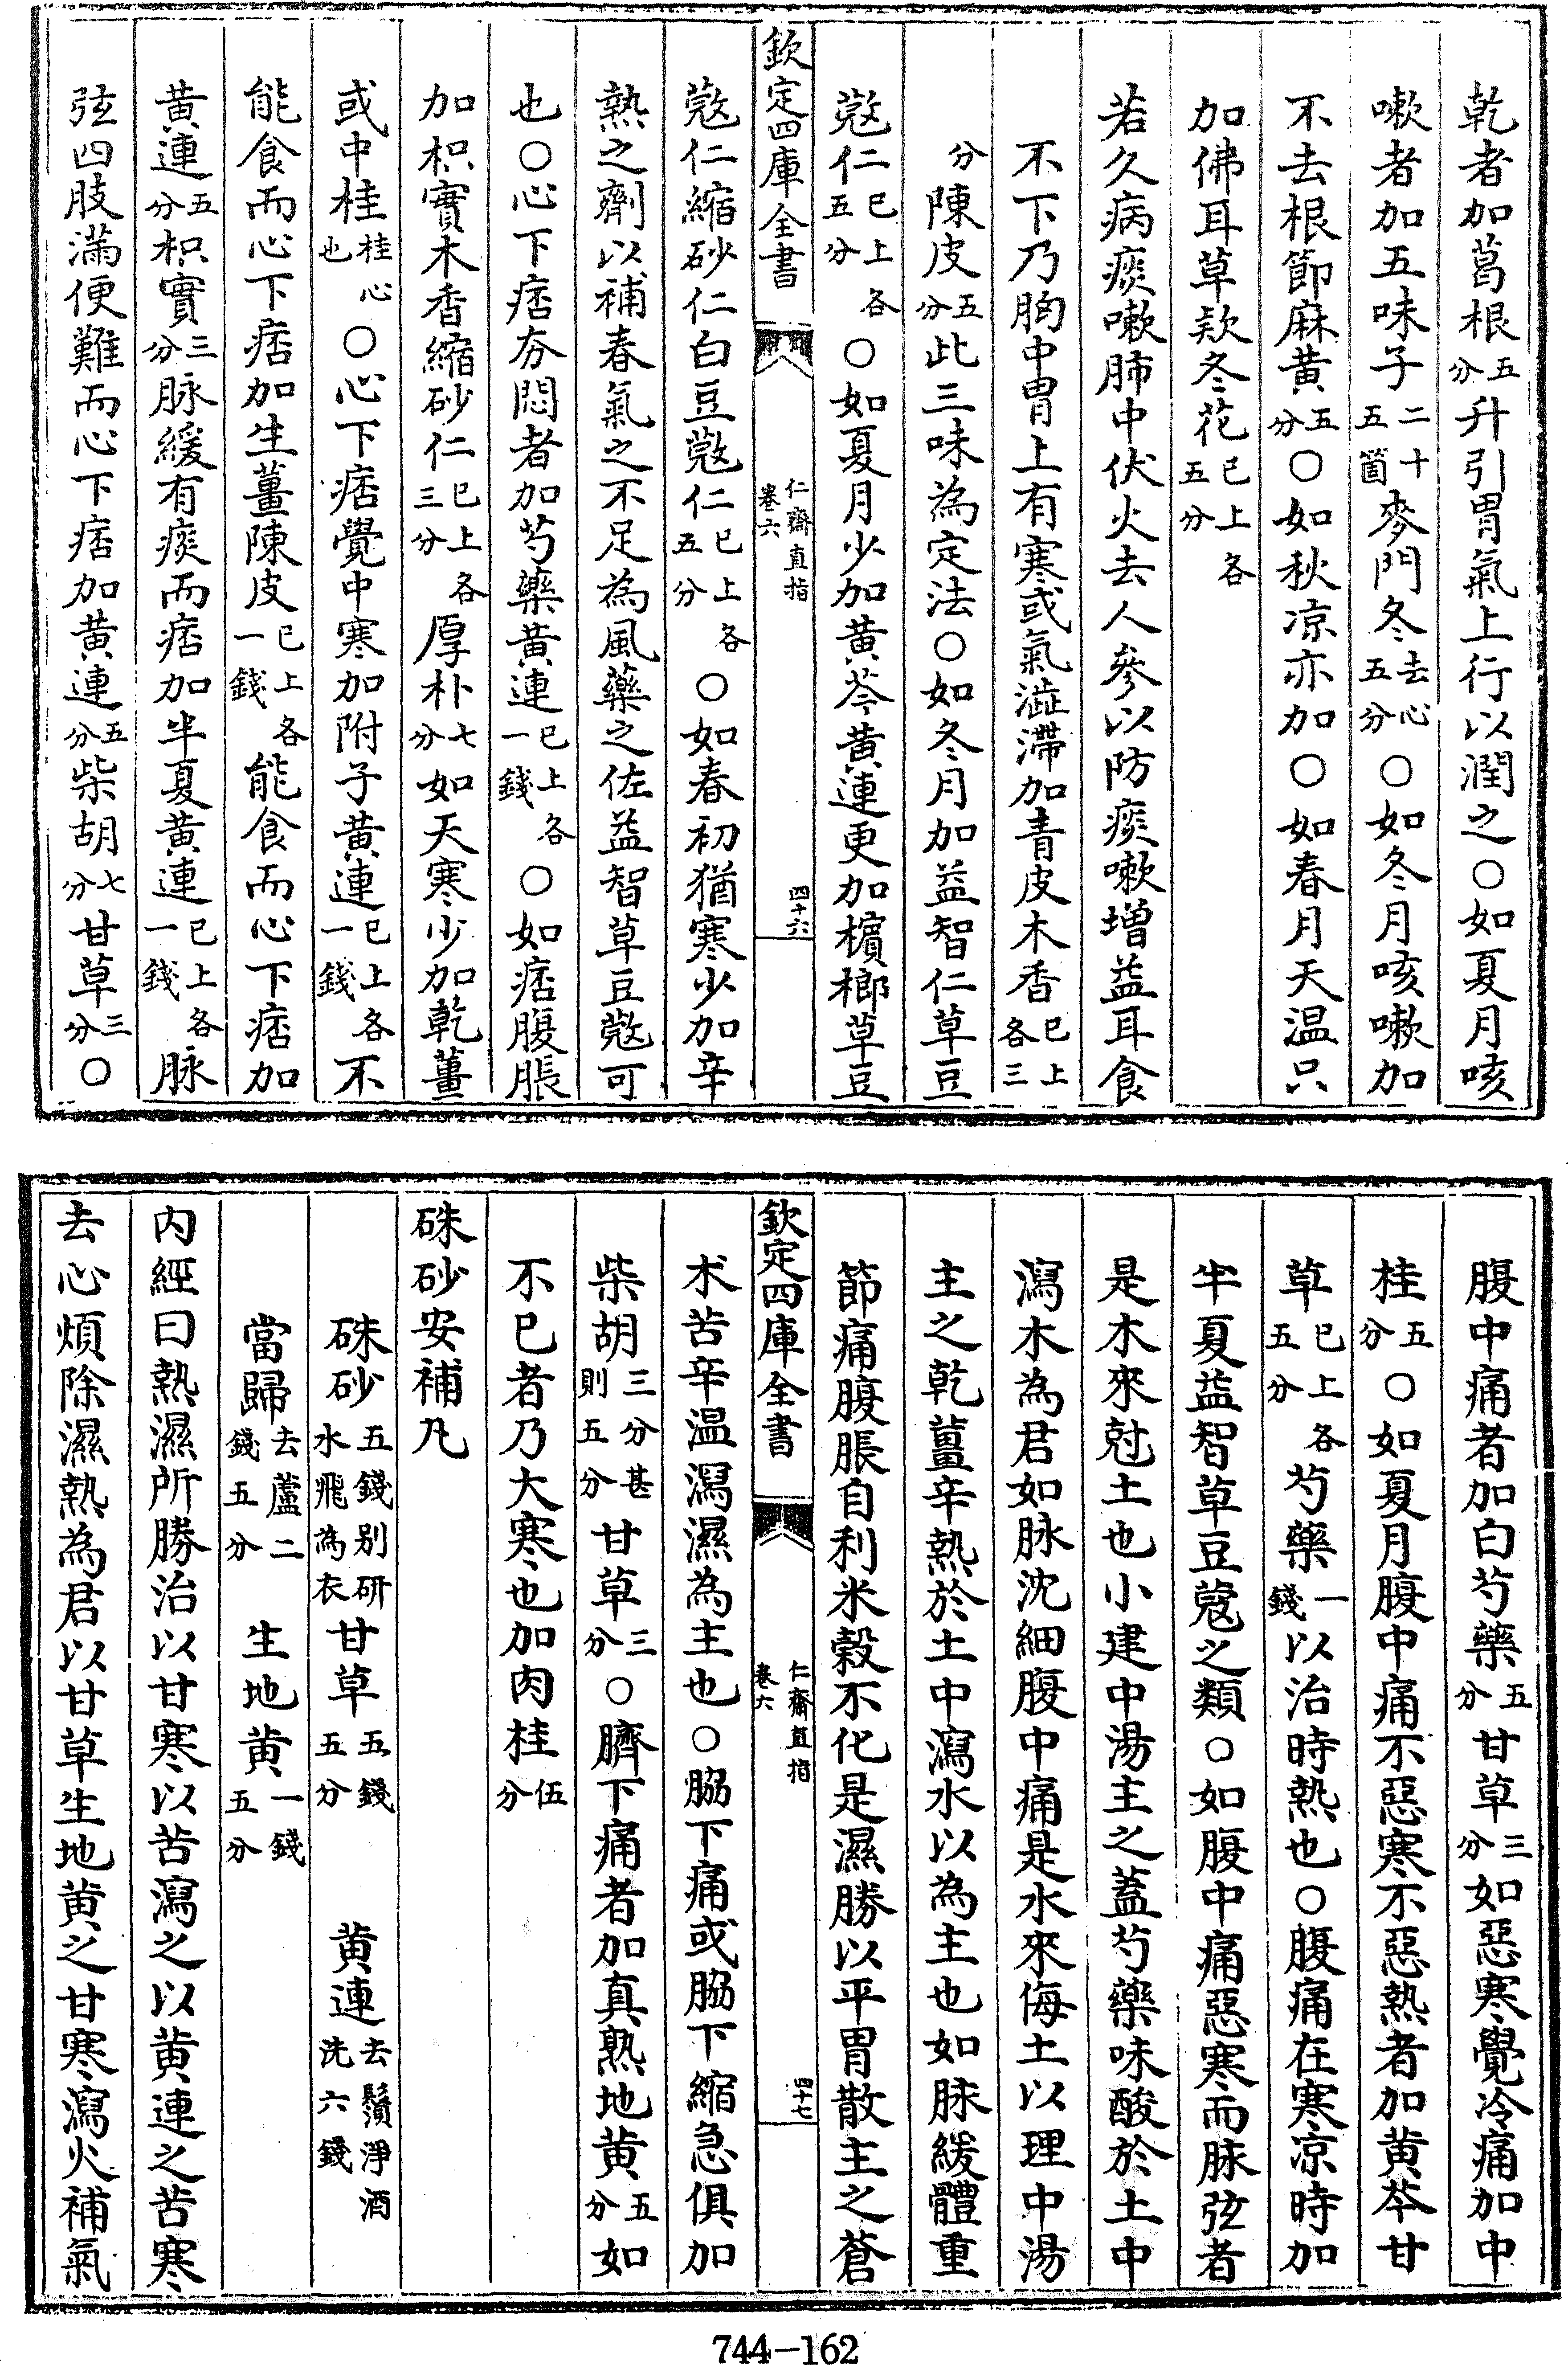 乾者加葛根五分升引胃氣上行以潤之○如夏月咳
嗽者加五味子二十五箇麥門冬去心五分○如冬月咳嗽加
不去根節麻黄五分○如秋凉亦加○如春月天温只
加佛耳草欵冬花已上各五分
若久病痰嗽肺中伏火去人參以防痰嗽增益耳食
不下乃胸中胃上有寒或氣澁滯加青皮木香已上各三
分陳皮五分此三味為定法○如冬月加益智仁草豆
蔲仁已上各五分○如夏月少加黄芩黄連更加檳榔草豆
欽定四庫全書
仁齋直指
卷六
四十六
蔲仁縮砂仁白豆蔲仁已上各五分○如春初猶寒少加辛
熱之劑以補春氣之不足為風藥之佐益智草豆蔲可
也○心下痞夯悶者加芍藥黄連已上各一錢○如痞腹脹
加枳實木香縮砂仁已上各三分厚朴七分如天寒少加乾薑
或中桂桂心也○心下痞覺中寒加附子黄連已上各一錢不
能食而心下痞加生薑陳皮已上各一錢能食而心下痞加
黄連五分枳實三分脉緩有痰而痞加半夏黄連已上各一錢脉
弦四肢滿便難而心下痞加黄連五分柴胡七分甘草三分○
腹中痛者加白芍藥五分甘草三分如惡寒覺冷痛加中
桂五分○如夏月腹中痛不惡寒不惡熱者加黄芩甘
草已上各五分芍藥一錢以治時熱也○腹痛在寒凉時加
半夏益智草豆蔻之類○如腹中痛惡寒而脉弦者
是木來尅土也小建中湯主之蓋芍藥味酸於土中
瀉木為君如脉沈細腹中痛是水來侮土以理中湯
主之乾薑辛熱於土中瀉水以為主也如脉緩體重
節痛腹脹自利米榖不化是濕勝以平胃散主之蒼
欽定四庫全書
仁齋直指
卷六
四十七
术苦辛温瀉濕為主也○脇下痛或脇下縮急俱加
柴胡三分甚則五分甘草三分○臍下痛者加真熟地黄五分如
不已者乃大寒也加肉桂伍分
硃砂安補凡
硃砂五錢别研水飛為衣甘草五錢五分 黄連去鬚淨酒洗六錢
當歸去蘆二錢五分 生地黄一錢五分
内經曰熱濕所勝治以甘寒以苦瀉之以黄連之苦寒
去心煩除濕熱為君以甘草生地黄之甘寒瀉火補氣
744-162